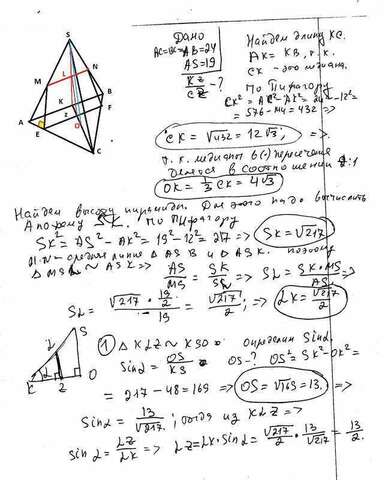 S
M
L
N
K
B
F
A
E
Z
O
C
Дано
AC=BC=AB=24
AS=19
KZ/CZ - ?
Найдем длину KC.
AK = KB, т.к.
CK - это медиана.
По Пифагору
CK² = AC² - AK² = 24² - 12² =
= 576 - 144 = 432 =>
CK = √432 = 12√3; =>
т.к. медианы в (·) пересечения
делятся в соотношении 2:1
OK = 1/3 CK = 4√3
Найдем высоту пирамиды. Для этого надо вычислить
Апофему SK. По Пифагору
SK² = AS² - AK² = 19² - 12² = 217 => SK = √217
MN - средняя линия △ASB и △ASK. поэтому
△MSL ~ ASK => AS/MS = SK/SL => SL = SK·MS/AS =>
SL = √217 · 19/2 / 19 = √217/2; => LK = √217/2
S
L
K
Z
O
1) △KLZ ~ KSO. Определим Sinα.
Sinα = OS/KS OS - ? OS² = SK² - OK² =
= 217 - 48 = 169 => OS = √169 = 13. =>
Sinα = 13/√217; тогда из KLZ =>
Sinα = LZ/LK => LZ = LK·Sinα = √217/2 · 13/√217 = 13/2.